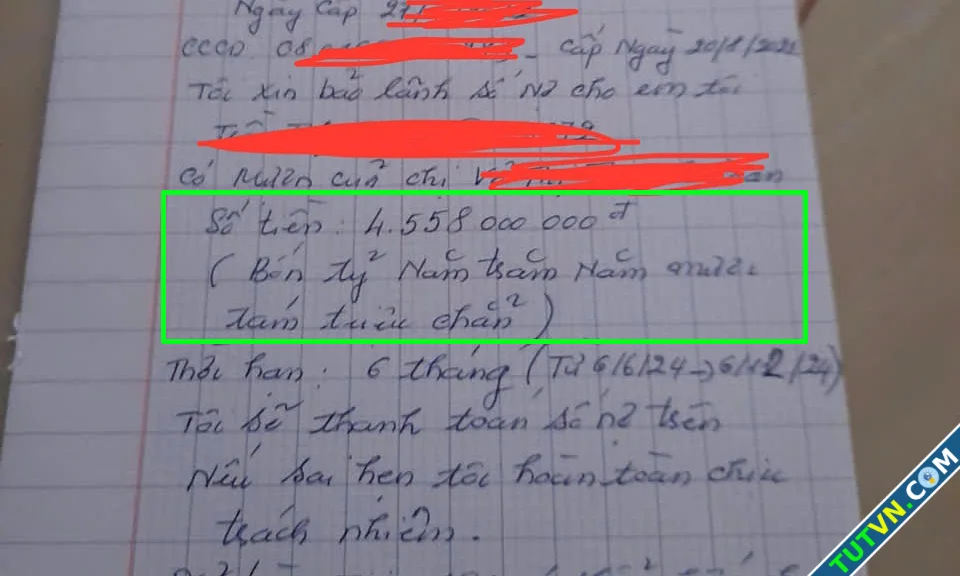 Ngày cấp 27
CCCD 08 - cấp Ngày 20/1/2021
Tôi xin bảo lãnh số nợ cho em tôi
có mượn của chị
Số tiền: 4.558 000 000 đ
( Bốn tỷ Năm trăm Năm mươi
tám triệu chẵn )
Thời hạn: 6 tháng (Từ 6/6/24 -> 6/12/24)
Tôi sẽ thanh toán số nợ trên
Nếu sai hẹn tôi hoàn toàn chịu
trách nhiệm.
TUTVN.COM